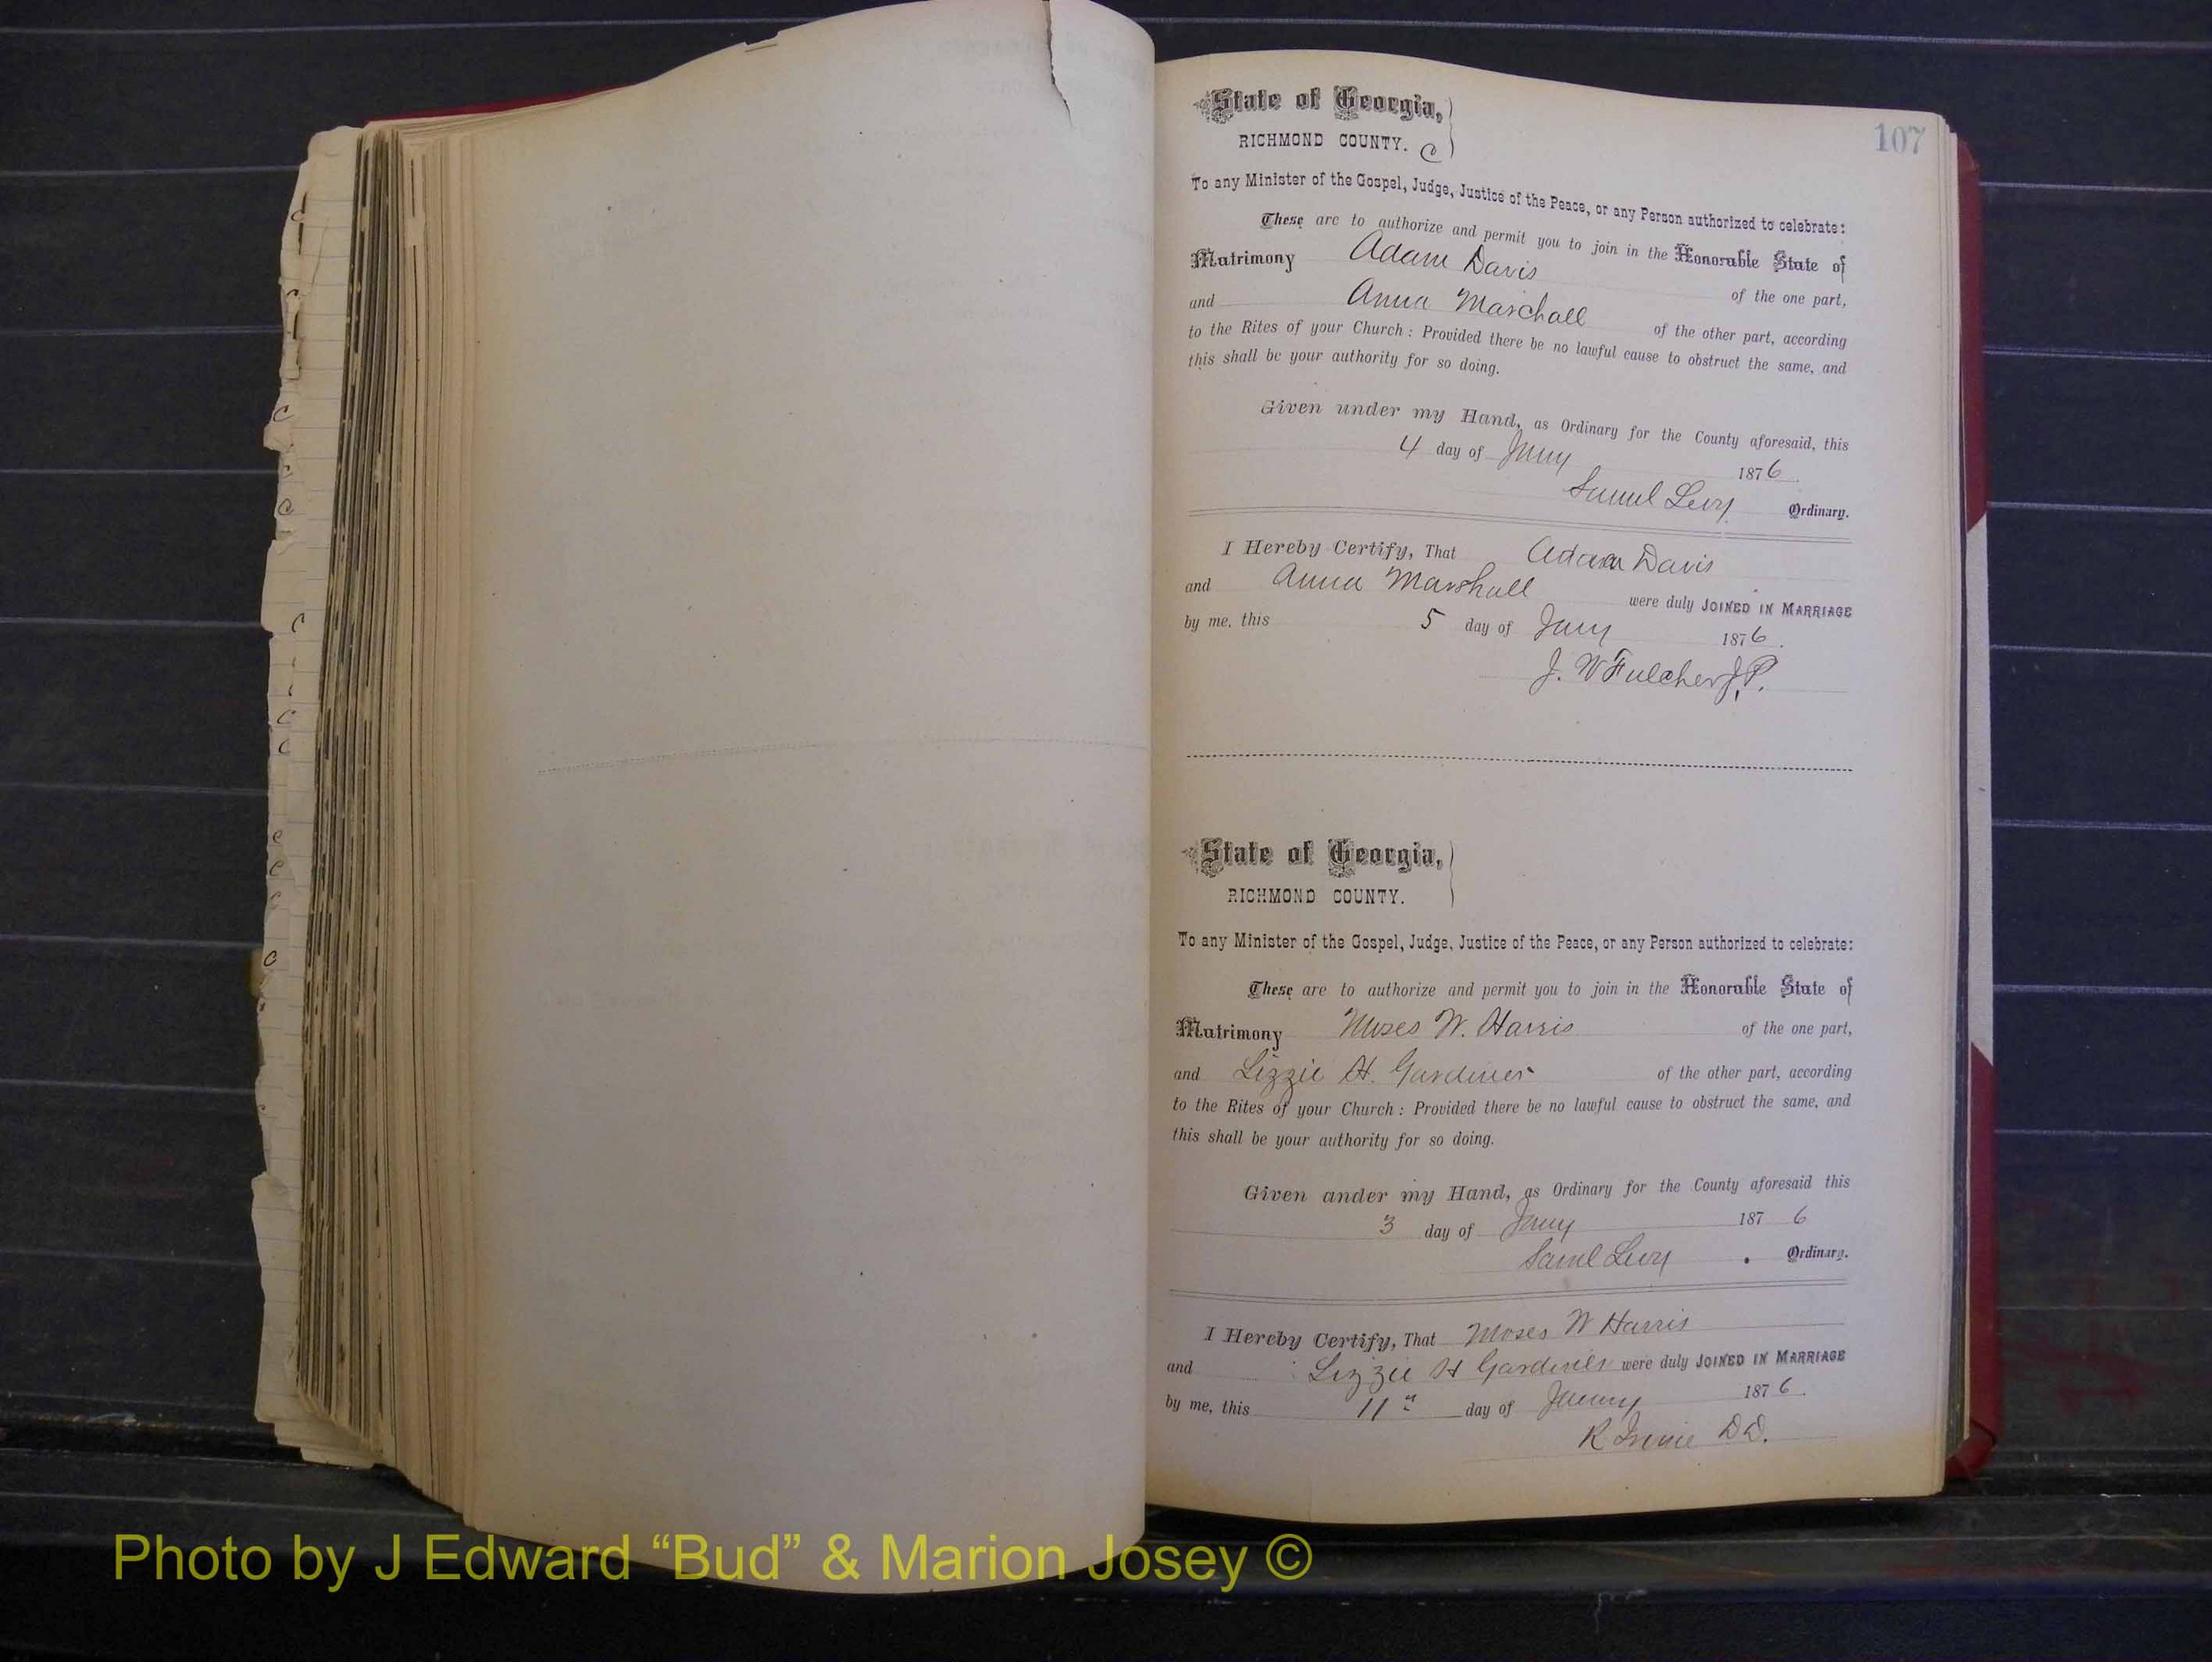 107
State of Georgia,
RICHMOND COUNTY. C
To any Minister of the Gospel, Judge, Justice of the Peace, or any Person authorized to celebrate:
These are to authorize and permit you to join in the Honorable State of
Matrimony Adam Davis of the one part,
and Anna Marshall of the other part, according
to the Rites of your Church: Provided there be no lawful cause to obstruct the same, and
this shall be your authority for so doing.
Given under my Hand, as Ordinary for the County aforesaid, this
4 day of Jany 1876.
Samuel Levy Ordinary.
I Hereby Certify, That Adam Davis
and Anna Marshall were duly JOINED IN MARRIAGE
by me, this 5 day of Jany 1876.
J. W Fulcher J.P.
State of Georgia,
RICHMOND COUNTY.
To any Minister of the Gospel, Judge, Justice of the Peace, or any Person authorized to celebrate:
These are to authorize and permit you to join in the Honorable State of
Matrimony Moses W. Harris of the one part,
and Lizzie H. Gardiner of the other part, according
to the Rites of your Church: Provided there be no lawful cause to obstruct the same, and
this shall be your authority for so doing.
Given under my Hand, as Ordinary for the County aforesaid this
3 day of Jany 1876
Saml Levy Ordinary.
I Hereby Certify, That Moses W Harris
and Lizzie H Gardiner were duly JOINED IN MARRIAGE
by me, this 11th day of Jany 1876.
R Irvine D.D.
Photo by J Edward “Bud” & Marion Josey ©